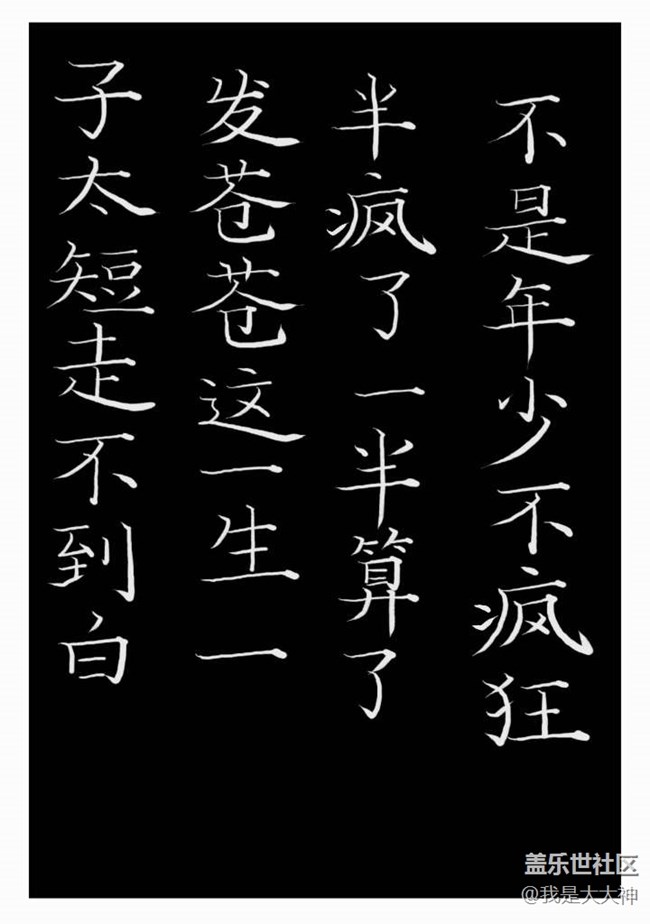 子太短走不到白
发苍苍这一生一
半疯了一半算了
不是年少不疯狂
盖乐世社区
@我是大大神